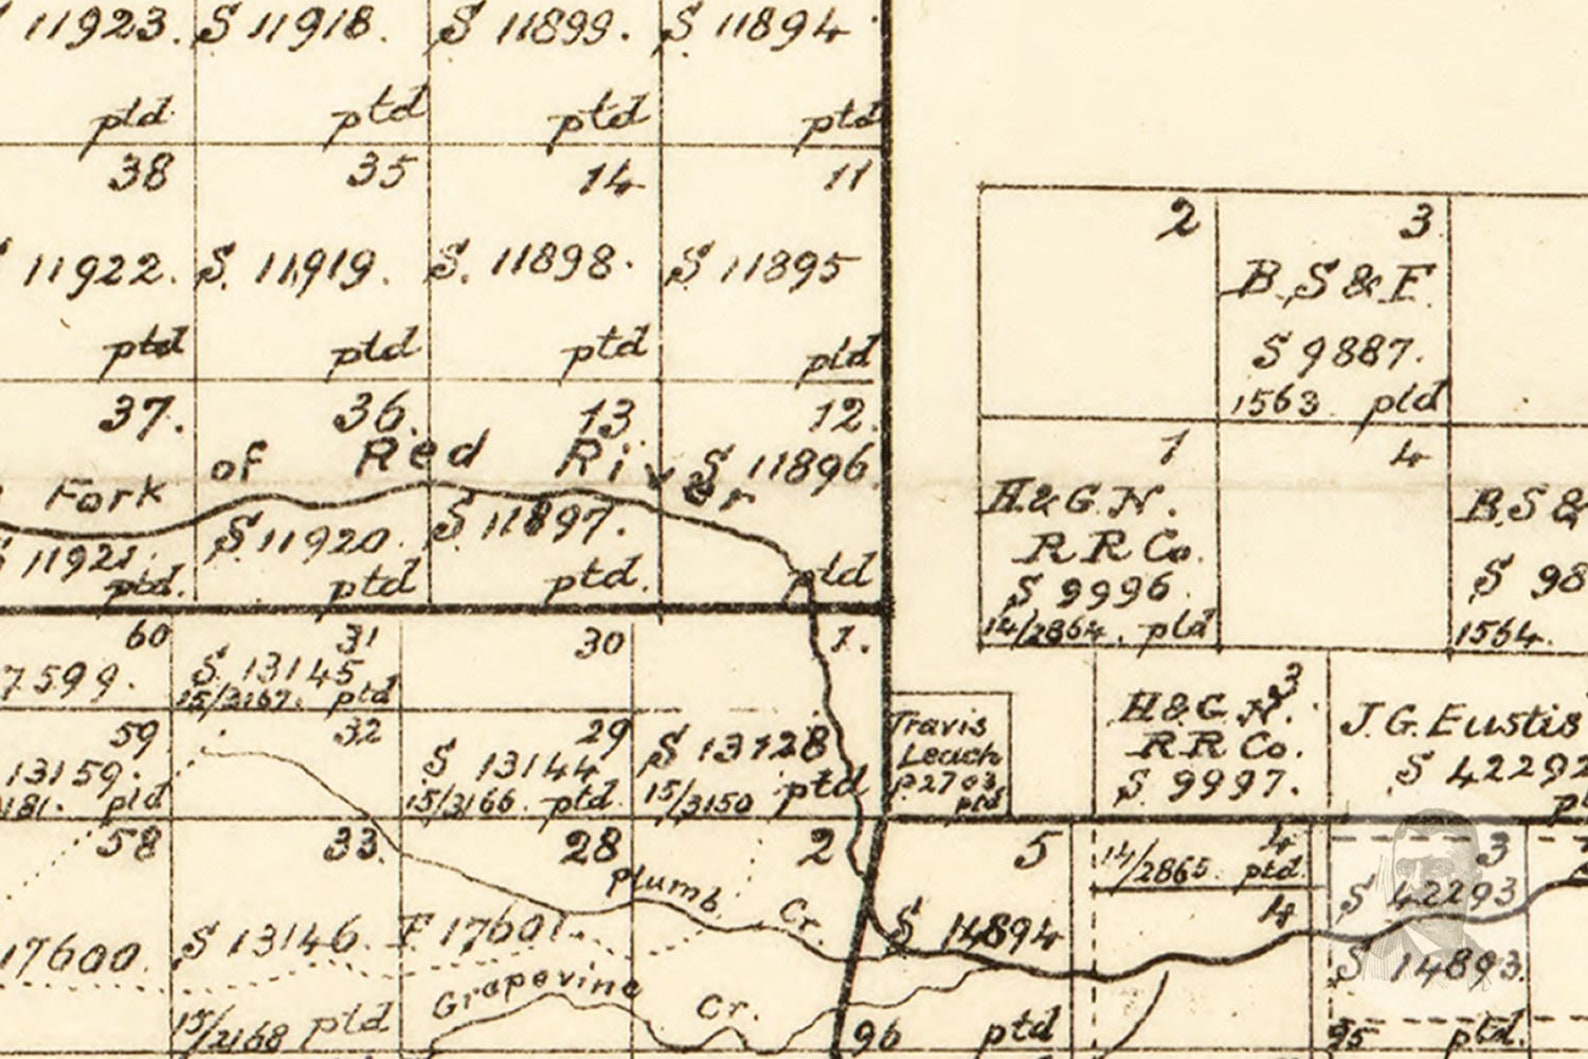 11923. S 11918. S 11899. S 11894
ptd ptd ptd ptd
38 35 14 11
2 3
11922. S. 11919. S. 11898. S 11895
B.S & F.
S 9887.
ptd ptd ptd ptd
1563 ptd
37. 36. 13 12.
1 4
Fork of Red River
S 11896
H.& G.N.
R R Co.
B.S &
S 11921 S 11920. S 11897.
S 9996
S 98
ptd. ptd ptd. ptd
14/2864. ptd
1564.
60 31 30 1.
7599. S 13145
15/3167. ptd
3
H.& G.N.
R R Co.
S 9997.
J.G. Eustis
S 42292
Travis
Leach
P.2703
ptd
59 32 29
13159. S 13144 S 13128
181. ptd 15/3166 ptd. 15/3150 ptd
58 33. 28 2 5 4 3
14/2865 ptd.
Plumb Cr.
4
S 42293
17600. S 13146. F 17601 S 14894
S 14893.
Grapevine Cr.
15/3168 ptd 96 ptd 95 ptd.